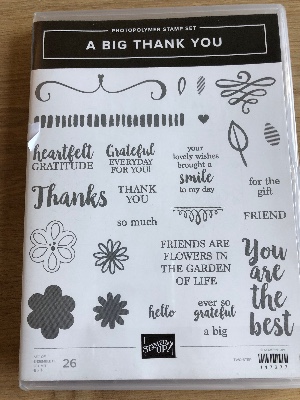 PHOTOPOLYMER STAMP SET
A BIG THANK YOU
heartfelt
GRATITUDE
Grateful
EVERYDAY
FOR YOU!
your
lovely wishes
brought a
smile
to my day
Thanks
THANK
YOU
for the
gift
so much
FRIEND
FRIENDS ARE
FLOWERS IN
THE GARDEN
OF LIFE
You
are
the
best
hello
ever so
grateful
a big
26
STAMPIN' UP!